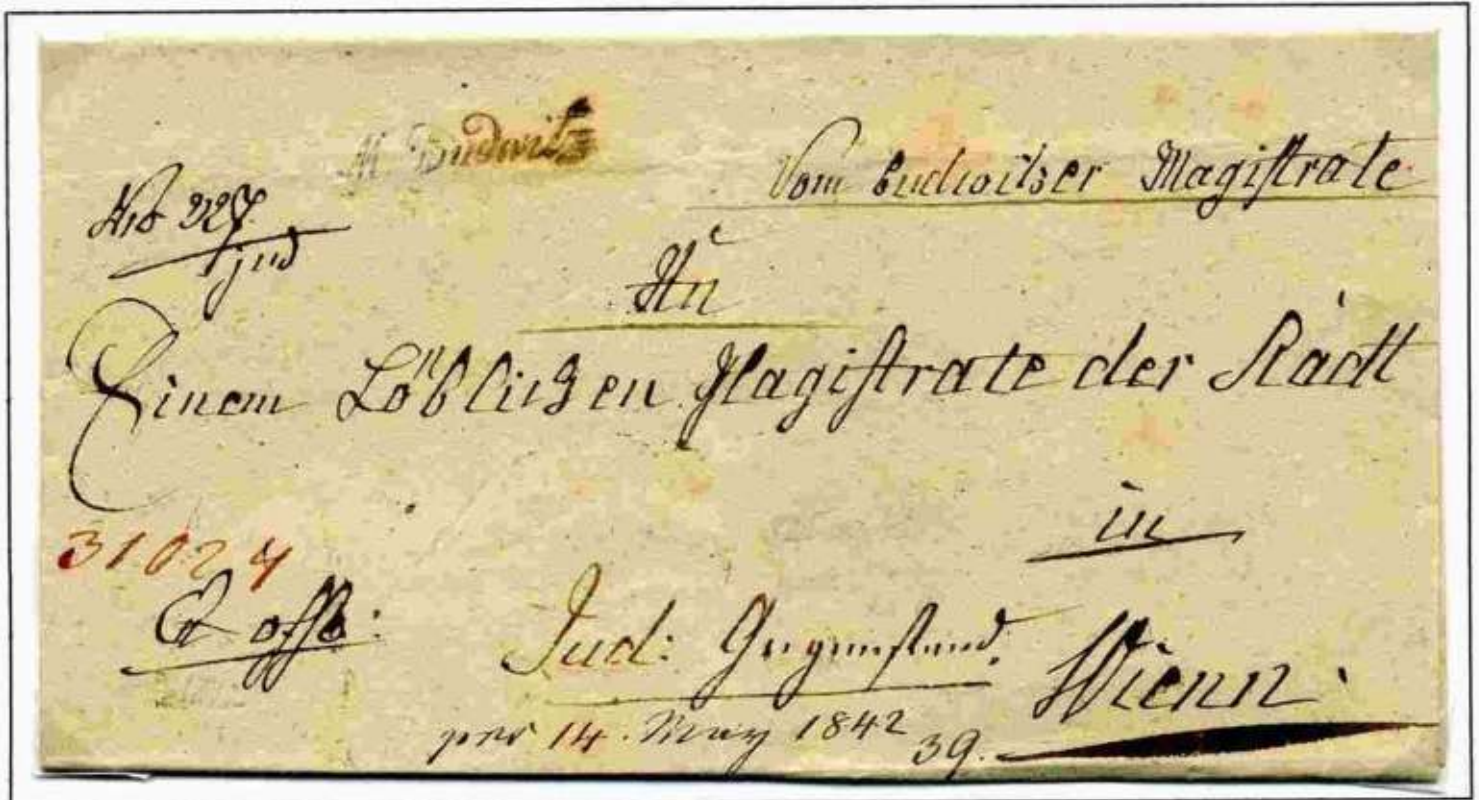 M. Budwitz
Vom budwitzer Magistrate
Nro 227
jud
An
Einem Löblichen Magistrate der Stadt
in
31024
Ex offo:
Jud: Gegenstand.
Wienn.
14. May 1842
39.